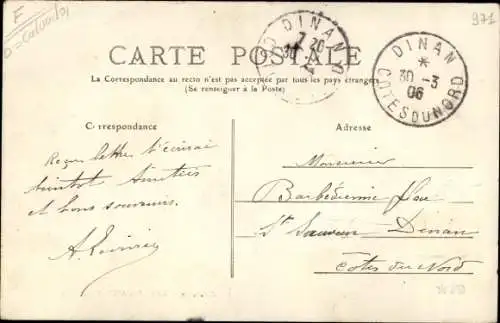 E
971
DINAN
7 20
30
CARTE POSTALE
La Correspondance au recto n'est pas acceptée par tous les pays étrangers
(Se renseigner à la Poste)
DINAN
*
30 -3
06
COTES DU NORD
Correspondance
Adresse
Reçu lettre t'écrirai
bientôt
et bons souvenirs.
Monsieur
Barbédienne
St Sauveur Dinan
Côtes du Nord